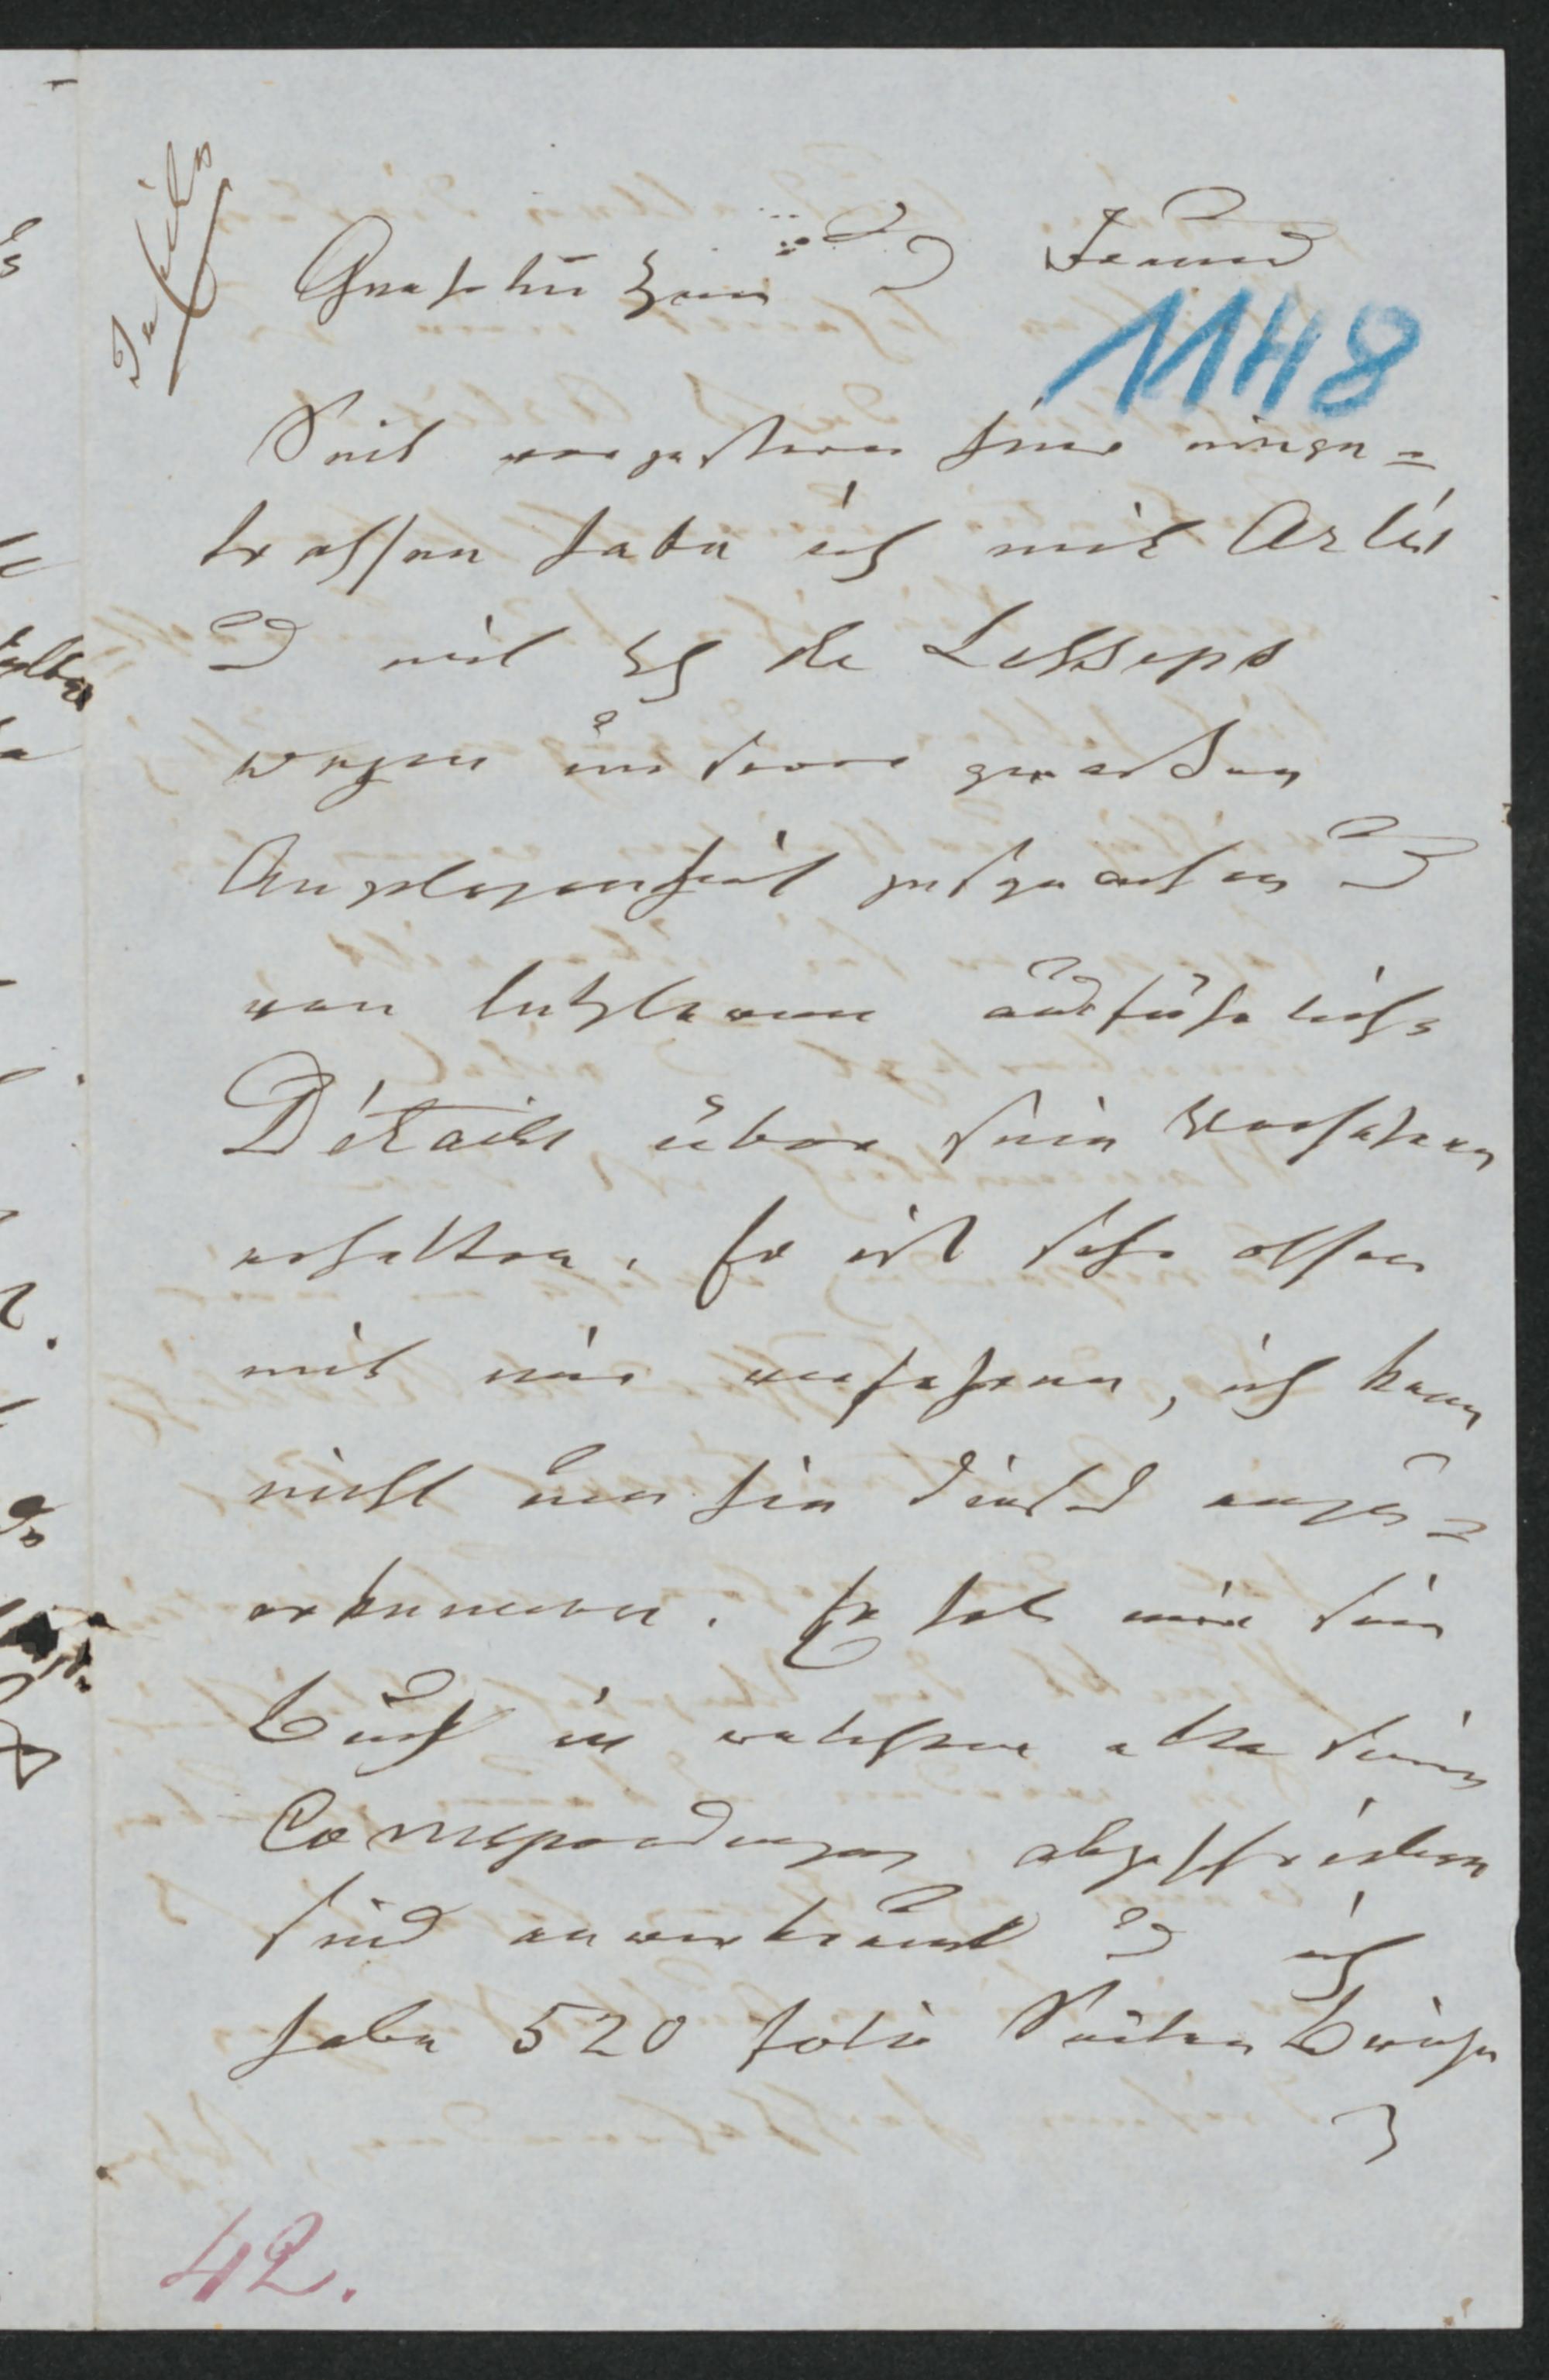 Geehrter Herr u Freund
1148
Seit vorgestern hier einge=
troffen habe ich mit Arlès
u mit H de Lesseps
wegen unserer großen
Angelegenheit gesprochen u
von letzterem ausführliche
Détails über sein Verfahren
erhalten. Er ist sehr offen
mit mir verfahren, ich kann
nicht umhin dieses anzu=
erkennen. Er hat mir sein
Buch in welchem alle seine
Correspondenzen abgeschrieben
sind anvertraut u ich
habe 520 folio Seiten Briefe
42.